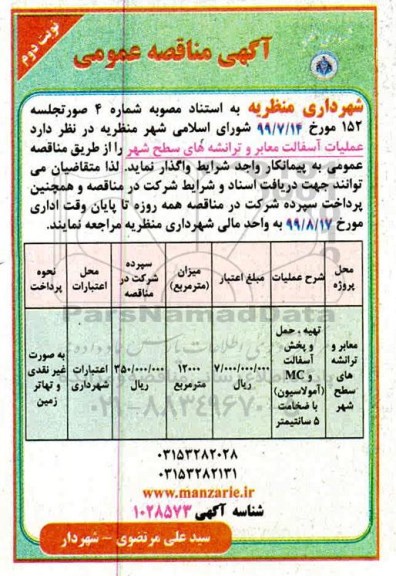 نوبت دوم
آگهی مناقصه عمومی
شهرداری منظریه به استناد مصوبه شماره ۴ صورتجلسه
۱۵۲ مورخ ۹۹/۷/۱۴ شورای اسلامی شهر منظریه در نظر دارد
عملیات آسفالت معابر و ترانشه های سطح شهر را از طریق مناقصه
عمومی به پیمانکار واجد شرایط واگذار نماید. لذا متقاضیان می
توانند جهت دریافت اسناد و شرایط شرکت در مناقصه و همچنین
پرداخت سپرده شرکت در مناقصه همه روزه تا پایان وقت اداری
مورخ ۹۹/۸/۱۷ به واحد مالی شهرداری منظریه مراجعه نمایند.
محل پروژه
شرح عملیات
مبلغ اعتبار
میزان (مترمربع)
سپرده شرکت در مناقصه
محل اعتبارات
نحوه پرداخت
معابر و ترانشه های سطح شهر
تهیه ، حمل و پخش آسفالت و MC (آمولاسیون) با ضخامت ۵ سانتیمتر
۷/۰۰۰/۰۰۰/۰۰۰ ریال
۱۲۰۰۰ مترمربع
۳۵۰/۰۰۰/۰۰۰ ریال
اعتبارات شهرداری
به صورت غیر نقدی و تهاتر زمین
ParsNamadData
۰۲۱-۸۸۳۴۹۶۷۰
۰۳۱۵۳۲۸۲۰۲۸
۰۳۱۵۳۲۸۲۱۳۱
www.manzarie.ir
شناسه آگهی ۱۰۲۸۵۷۳
سید علی مرتضوی – شهردار